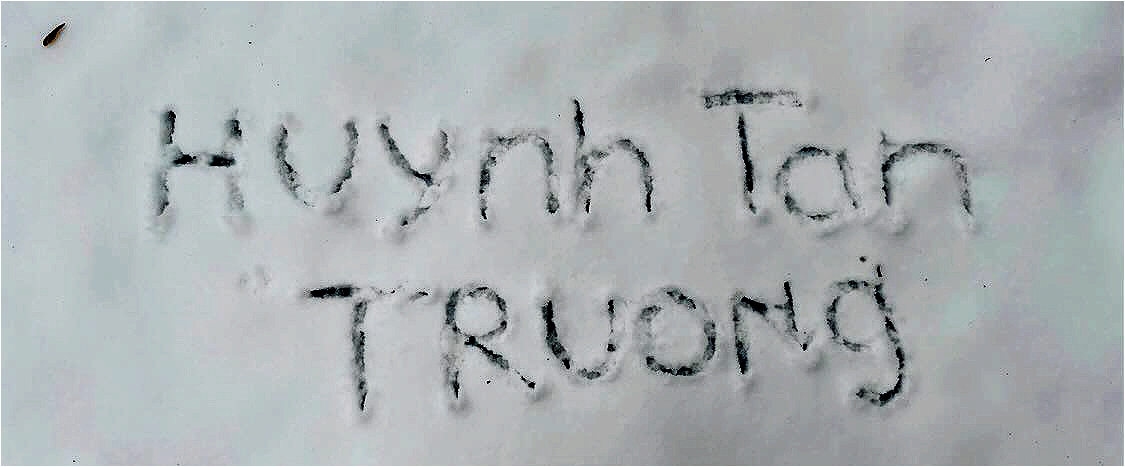 HUynh Tan
TRUONg